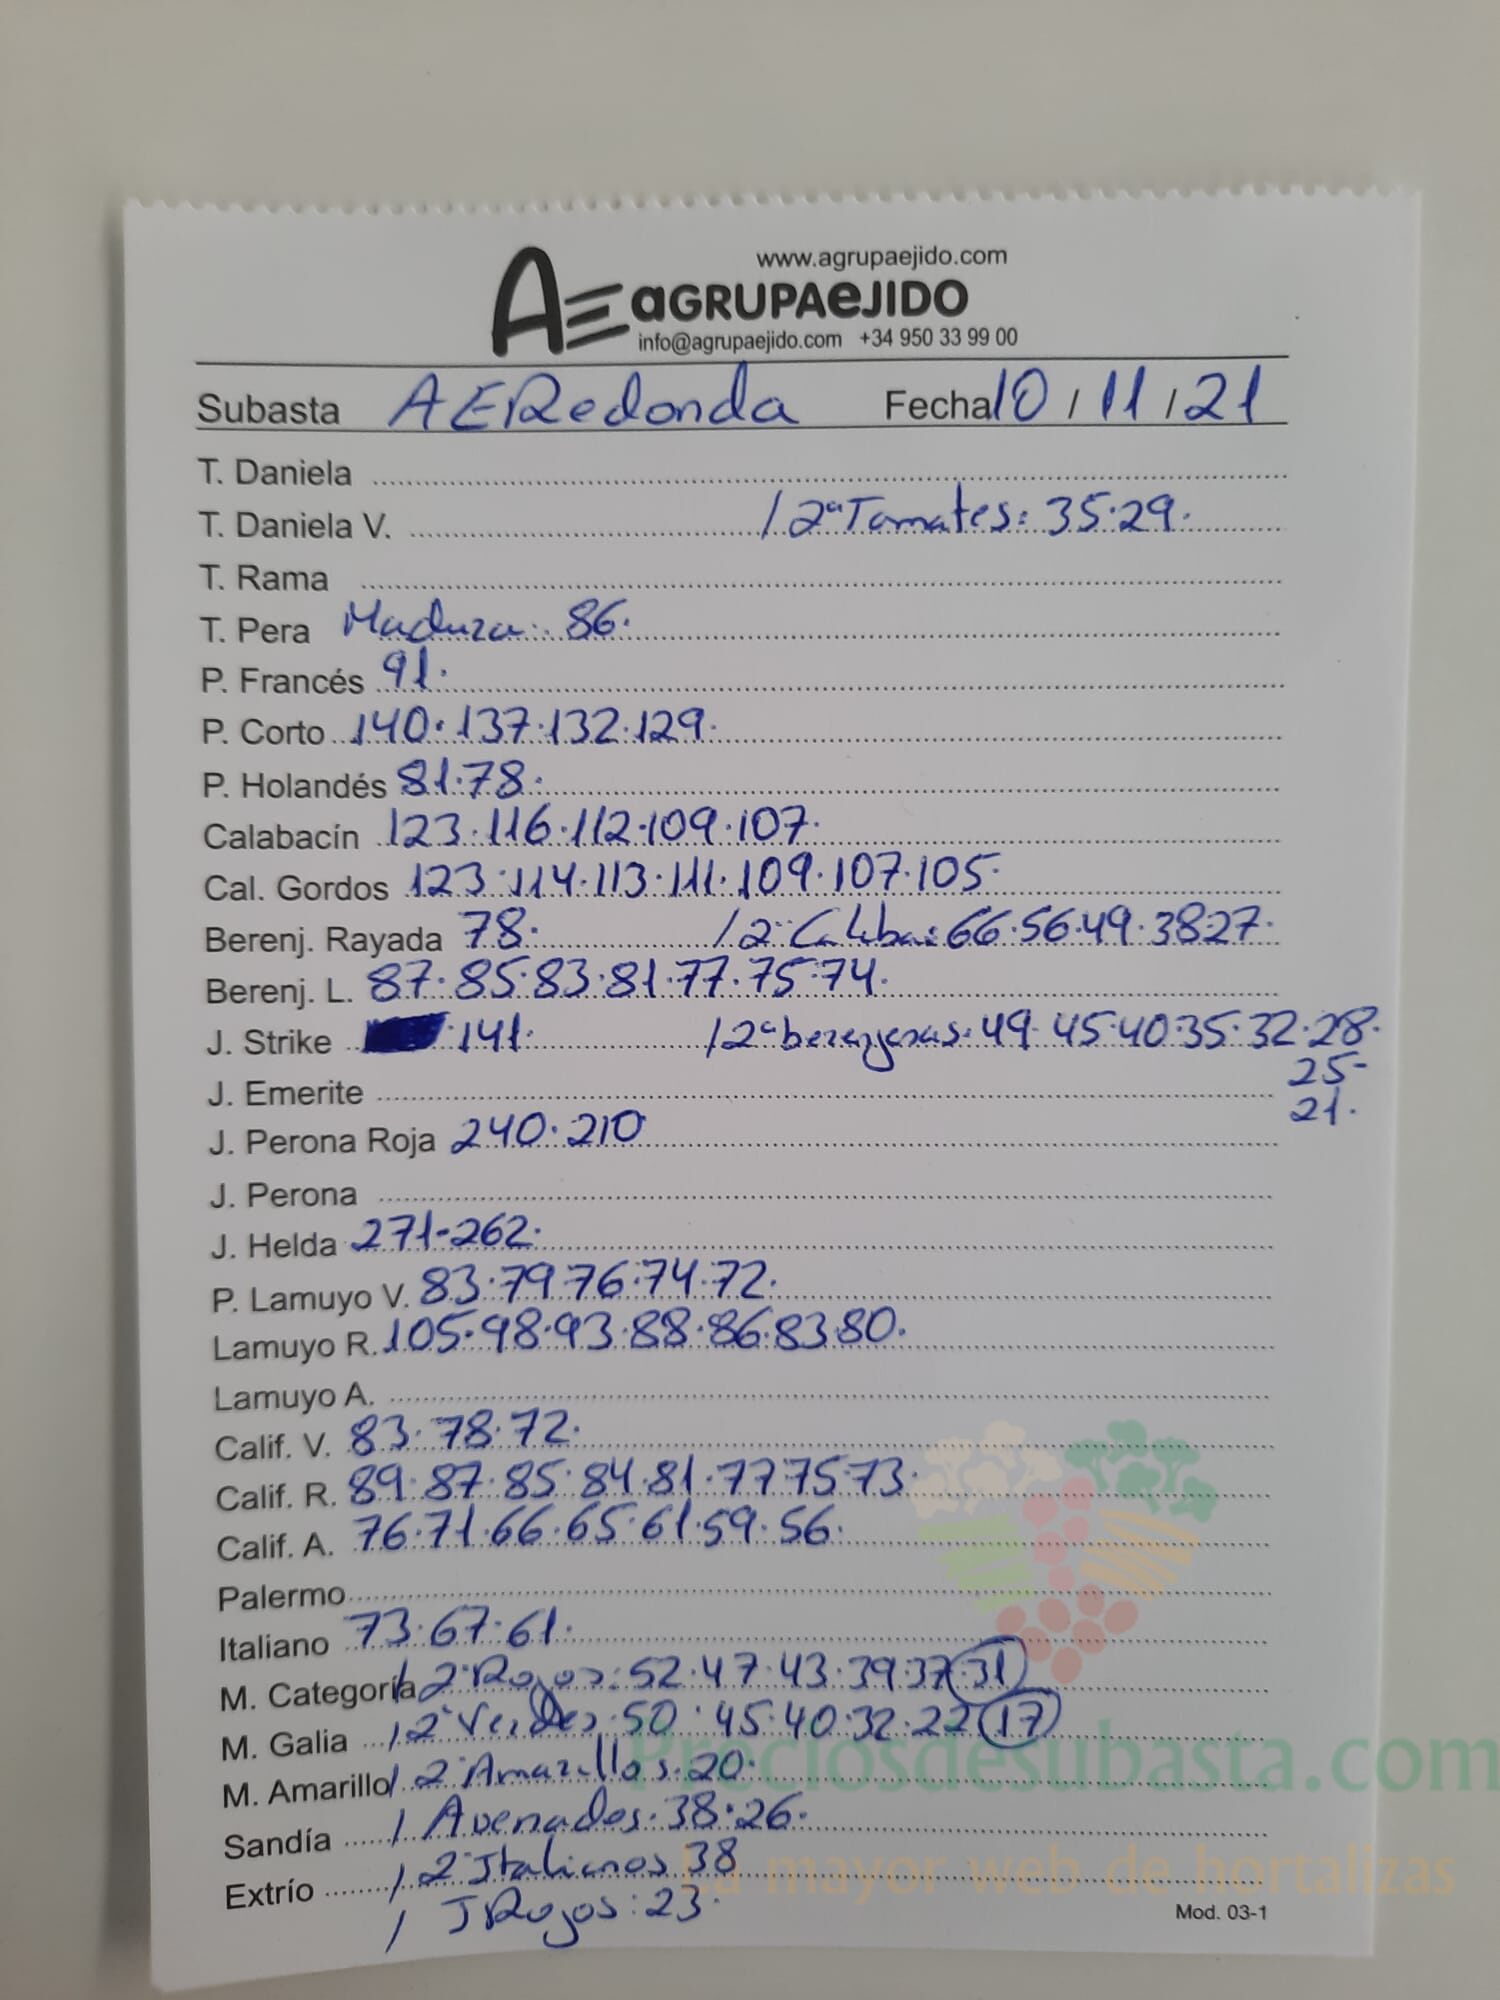 www.agrupaejido.com
AE aGRUPAeJIDO
info@agrupaejido.com +34 950 33 99 00
Subasta AERedonda Fecha 10/11/21
T. Daniela
T. Daniela V. / 2ª Tomates: 35·29.
T. Rama
T. Pera Madura: 86.
P. Francés 91.
P. Corto 140·137·132·129.
P. Holandés 81·78.
Calabacín 123·116·112·109·107.
Cal. Gordos 123·114·113·111·109·107·105.
Berenj. Rayada 78. / 2ª Calaba: 66·56·49·38·27.
Berenj. L. 87·85·83·81·77·75·74.
J. Strike 141. / 2ª berenjenas: 49·45·40·35·32·28.
25-
J. Emerite
21.
J. Perona Roja 240·210
J. Perona
J. Helda 271-262.
P. Lamuyo V. 83·79·76·74·72.
Lamuyo R. 105·98·93·88·86·83·80.
Lamuyo A.
Calif. V. 83·78·72.
Calif. R. 89·87·85·84·81·77·75·73.
Calif. A. 76·71·66·65·61·59·56.
Palermo
Italiano 73·67·61.
M. Categoría / 2ª Rojos: 52·47·43·39·37·31
M. Galia / 2ª Verdes: 50·45·40·32·22·17
M. Amarillo / 2ª Amarillos·20.
Preciosdesubasta.com
Sandía / Avenados·38·26.
Extrío / 2ª Italianos 38
La mayor web de hortalizas
/ J Rojos: 23.
Mod. 03-1